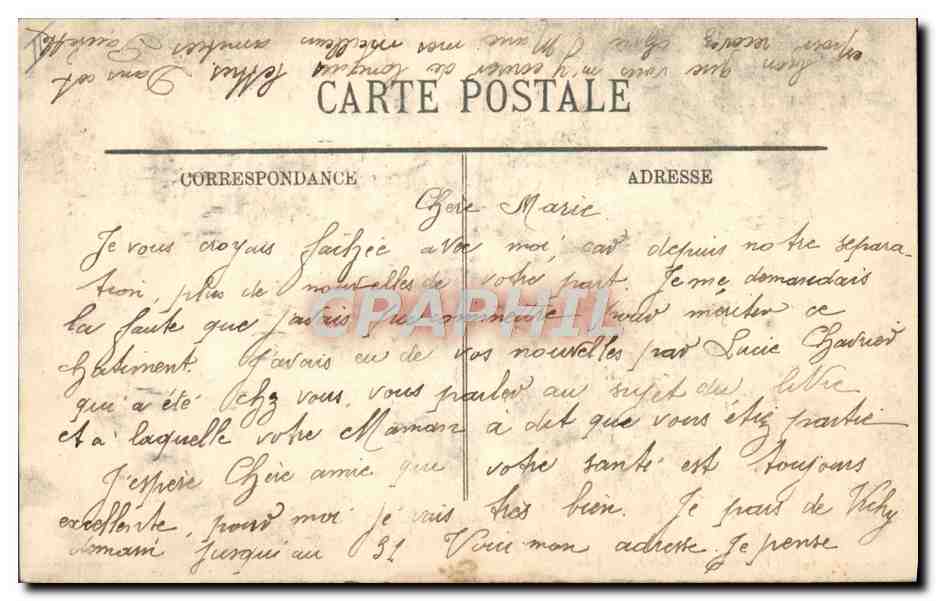 CARTE POSTALE
CORRESPONDANCE
ADRESSE
Chère Marie
Je vous croyais fâchée avec moi, car depuis notre sépara-
tion, plus de nouvelles de votre part. Je me demandais
la faute que j'avais pu commettre pour mériter ce
châtiment. J'avais eu de vos nouvelles par Lucie
qui a été chez vous, vous parler au sujet du livre
et à laquelle votre Maman a dit que vous étiez partie
J'espère Chère amie que votre santé est toujours
excellente, pour moi je vais très bien. Je pars de Vichy
demain jusqu'au 31 Voici mon adresse. Je pense
bien que vous m'y enverrez de longues lettres. Dans cet
espoir recevez chère Marie mes meilleurs amitiés
CPAPHIL